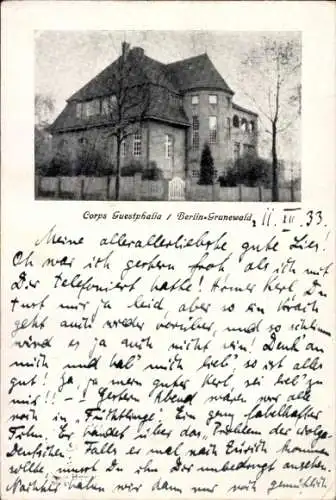 Corps Guestphalia / Berlin-Grunewald
11. XII 33.
Meine allerallerliebste gute Lies!
Oh war ich gestern froh als ich mit
Dir telefoniert hatte! Armer Kerl Du
tust mir ja leid, aber so ein Krach
geht auch wieder vorüber, und so schlimm
wird es ja auch nicht sein. Denk' an
mich und hab' mich lieb', so ist alles
gut! Ja, ja mein guter Kerl, sei lieb' zu
mir!! - Gestern Abend waren wir alle
noch in "Flüchtlinge". Ein ganz fabelhafter
Film. Er handelt über das "Problem der Wolga-
Deutschen". Falls er mal nach Zürich kommen
sollte, musst Du ihn Dir unbedingt ansehen.
Nachher haben wir dann nur noch gemütlich